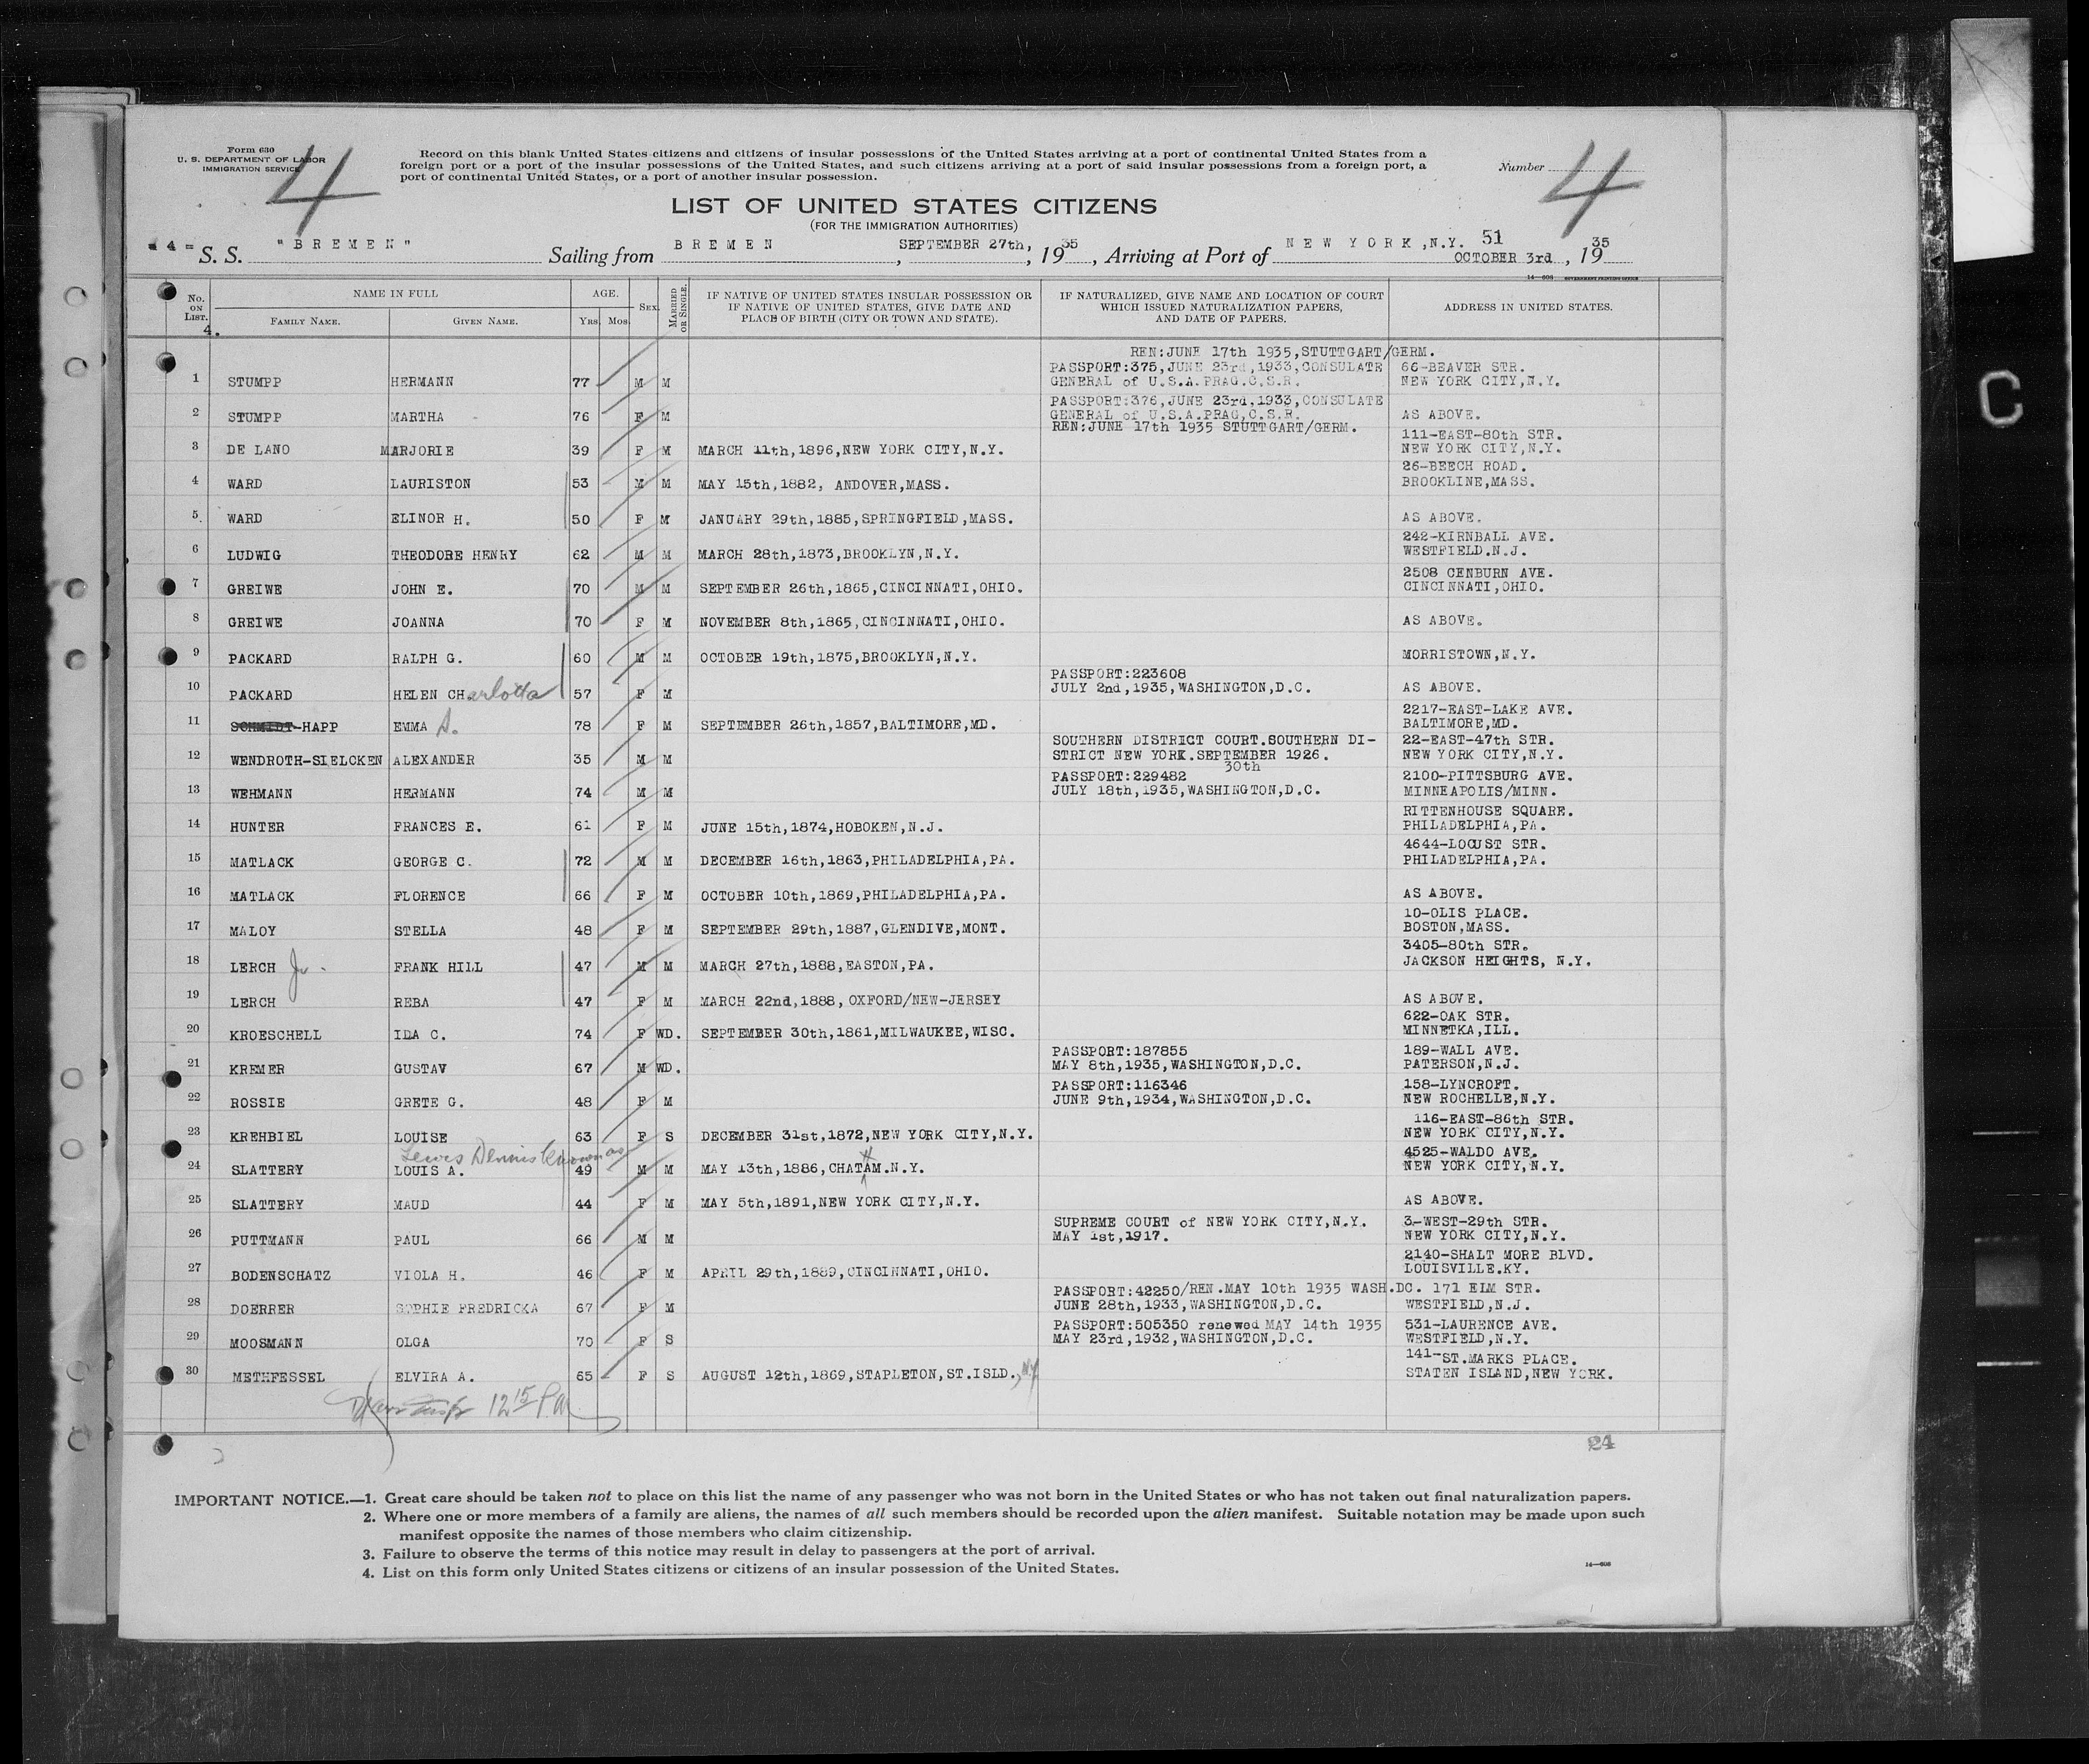 Form 630
U. S. DEPARTMENT OF LABOR
IMMIGRATION SERVICE
4
Record on this blank United States citizens and citizens of insular possessions of the United States arriving at a port of continental United States from a
foreign port or a port of the insular possessions of the United States, and such citizens arriving at a port of said insular possessions from a foreign port, a
port of continental United States, or a port of another insular possession.
Number
4
LIST OF UNITED STATES CITIZENS
(FOR THE IMMIGRATION AUTHORITIES)
= 4 = S. S. "BREMEN" Sailing from BREMEN, SEPTEMBER 27th, 1935, Arriving at Port of NEW YORK,N.Y. 51 OCTOBER 3rd, 1935
14—608 GOVERNMENT PRINTING OFFICE
No. ON LIST. 4. NAME IN FULL FAMILY NAME. GIVEN NAME. AGE. YRS. MOS. SEX. MARRIED OR SINGLE. IF NATIVE OF UNITED STATES INSULAR POSSESSION OR IF NATIVE OF UNITED STATES, GIVE DATE AND PLACE OF BIRTH (CITY OR TOWN AND STATE). IF NATURALIZED, GIVE NAME AND LOCATION OF COURT WHICH ISSUED NATURALIZATION PAPERS, AND DATE OF PAPERS. ADDRESS IN UNITED STATES.
REN:JUNE 17th 1935,STUTTGART/GERM.
PASSPORT:375,JUNE 23rd,1933,CONSULATE 66-BEAVER STR.
1 STUMPP HERMANN 77 M M GENERAL of U.S.A.PRAG.C.S.R. NEW YORK CITY,N.Y.
PASSPORT:376, JUNE 23rd,1933,CONSULATE
2 STUMPP MARTHA 76 F M GENERAL of U.S.A.PRAG,C.S.R. AS ABOVE.
REN:JUNE 17th 1935 STUTTGART/GERM.
111-EAST-80th STR.
3 DE LANO MARJORIE 39 F M MARCH 11th,1896,NEW YORK CITY,N.Y. NEW YORK CITY,N.Y.
26-BEECH ROAD.
4 WARD LAURISTON 53 M M MAY 15th,1882, ANDOVER,MASS. BROOKLINE,MASS.
5 WARD ELINOR H. 50 F M JANUARY 29th,1885,SPRINGFIELD,MASS. AS ABOVE.
242-KIRNBALL AVE.
6 LUDWIG THEODORE HENRY 62 M M MARCH 28th,1873,BROOKLYN,N.Y. WESTFIELD.N.J.
2508 CENBURN AVE.
7 GREIWE JOHN E. 70 M M SEPTEMBER 26th,1865,CINCINNATI,OHIO. CINCINNATI,OHIO.
8 GREIWE JOANNA 70 F M NOVEMBER 8th,1865,CINCINNATI,OHIO. AS ABOVE.
9 PACKARD RALPH G. 60 M M OCTOBER 19th,1875,BROOKLYN,N.Y. MORRISTOWN,N.Y.
PASSPORT:223608
10 PACKARD HELEN CHarlotta 57 F M JULY 2nd,1935,WASHINGTON,D.C. AS ABOVE.
2217-EAST-LAKE AVE.
11 SCHMIDT-HAPP EMMA A. 78 F M SEPTEMBER 26th,1857,BALTIMORE,MD. BALTIMORE,MD.
SOUTHERN DISTRICT COURT.SOUTHERN DI- 22-EAST-47th STR.
12 WENDROTH-SIELCKEN ALEXANDER 35 M M STRICT NEW YORK.SEPTEMBER 1926. NEW YORK CITY,N.Y.
30th
PASSPORT:229482 2100-PITTSBURG AVE.
13 WEHMANN HERMANN 74 M M JULY 18th,1935,WASHINGTON,D.C. MINNEAPOLIS/MINN.
RITTENHOUSE SQUARE.
14 HUNTER FRANCES E. 61 F M JUNE 15th,1874,HOBOKEN,N.J. PHILADELPHIA,PA.
4644-LOCUST STR.
15 MATLACK GEORGE C. 72 M M DECEMBER 16th,1863,PHILADELPHIA,PA. PHILADELPHIA,PA.
16 MATLACK FLORENCE 66 F M OCTOBER 10th,1869,PHILADELPHIA,PA. AS ABOVE.
10-OLIS PLACE.
17 MALOY STELLA 48 F M SEPTEMBER 29th,1887,GLENDIVE,MONT. BOSTON,MASS.
3405-80th STR.
18 LERCH Jr. FRANK HILL 47 M M MARCH 27th,1888,EASTON,PA. JACKSON HEIGHTS, N.Y.
19 LERCH REBA 47 F M MARCH 22nd,1888, OXFORD/NEW-JERSEY AS ABOVE.
622-OAK STR.
20 KROESCHELL IDA C. 74 F WD. SEPTEMBER 30th,1861,MILWAUKEE,WISC. MINNETKA,ILL.
PASSPORT:187855 189-WALL AVE.
21 KREMER GUSTAV 67 M WD. MAY 8th,1935,WASHINGTON,D.C. PATERSON,N.J.
PASSPORT:116346 158-LYNCROFT.
22 ROSSIE GRETE G. 48 F M JUNE 9th,1934,WASHINGTON,D.C. NEW ROCHELLE,N.Y.
116-EAST-86th STR.
23 KREHBIEL LOUISE 63 F S DECEMBER 31st,1872,NEW YORK CITY,N.Y. NEW YORK CITY,N.Y.
Lewis Dennis known as H 4525-WALDO AVE.
24 SLATTERY LOUIS A. 49 M M MAY 13th,1886,CHATAM.N.Y. NEW YORK CITY,N.Y.
25 SLATTERY MAUD 44 F M MAY 5th,1891,NEW YORK CITY,N.Y. AS ABOVE.
SUPREME COURT of NEW YORK CITY,N.Y. 3-WEST-29th STR.
26 PUTTMANN PAUL 66 M M MAY 1st,1917. NEW YORK CITY,N.Y.
2140-SHALT MORE BLVD.
27 BODENSCHATZ VIOLA H. 46 F M APRIL 29th,1889,CINCINNATI,OHIO. LOUISVILLE.KY.
PASSPORT:42250/REN.MAY 10th 1935 WASH.DC. 171 ELM STR.
28 DOERRER SOPHIE FREDRICKA 67 F M JUNE 28th,1933,WASHINGTON,D.C. WESTFIELD,N.J.
PASSPORT:505350 renewed MAY 14th 1935 531-LAURENCE AVE.
29 MOOSMANN OLGA 70 F S MAY 23rd,1932,WASHINGTON,D.C. WESTFIELD,N.Y.
141-ST.MARKS PLACE.
30 METHFESSEL ELVIRA A. 65 F S AUGUST 12th,1869,STAPLETON,ST.ISLD., N.Y. STATEN ISLAND,NEW YORK.
12 15 P
24
IMPORTANT NOTICE.—1. Great care should be taken not to place on this list the name of any passenger who was not born in the United States or who has not taken out final naturalization papers.
2. Where one or more members of a family are aliens, the names of all such members should be recorded upon the alien manifest. Suitable notation may be made upon such
manifest opposite the names of those members who claim citizenship.
3. Failure to observe the terms of this notice may result in delay to passengers at the port of arrival.
4. List on this form only United States citizens or citizens of an insular possession of the United States.
14—608
C